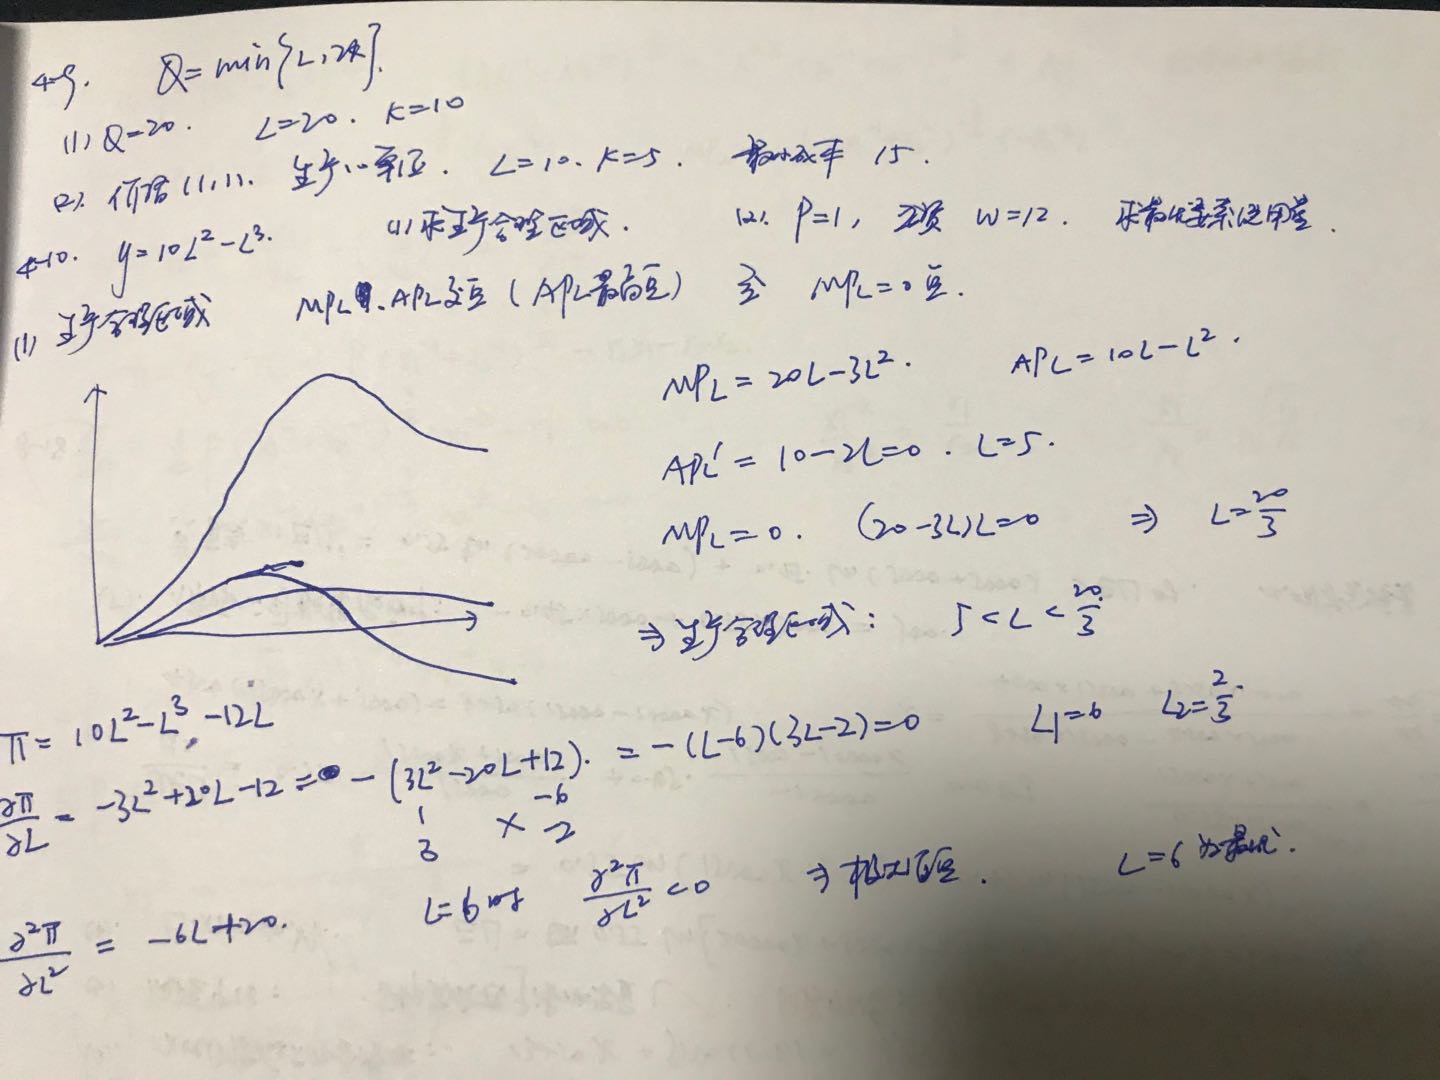 4-9. Q=min{L,2K}.
(1) Q=20. L=20. K=10
(2). 价格(1,1). 生产10单位. L=10. K=5. 最小成本 15.
4-10. y=10L²-L³. (1) 求生产合理区域. (2). P=1, 工资 w=12. 求最优要素使用量.
(1) 生产合理区域 MPL、APL交点(APL最高点) 至 MPL=0点.
MPL=20L-3L². APL=10L-L².
APL'=10-2L=0. L=5.
MPL=0. (20-3L)L=0 ⇒ L=20/3
⇒生产合理区域: 5<L<20/3
π=10L²-L³-12L
∂π/∂L = -3L²+20L-12= -(3L²-20L+12). = -(L-6)(3L-2)=0 L1=6 L2=2/3.
1 -6
3 × -2
∂²π/∂L² = -6L+20. L=6时 ∂²π/∂L²<0 ⇒极大值点. L=6为最优.